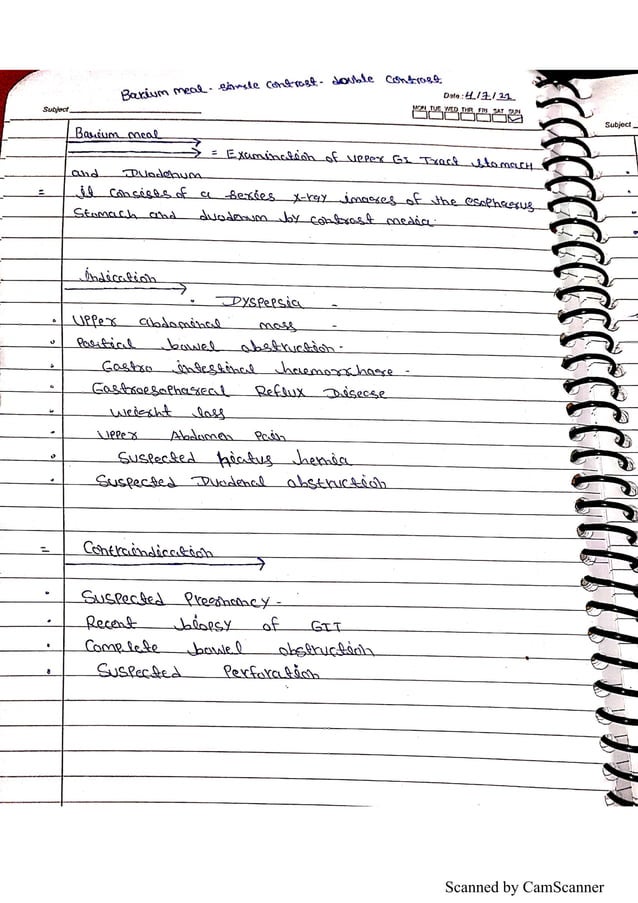 Barium meal - single contrast - double contrast
Date: 4/7/21
Subject
MON TUE WED THR FRI SAT SUN
Subject
Barium meal
= Examination of upper GI Tract stomach
and Duodenum
= it consists of a series x-ray images of the esophagus
stomach and duodenum by contrast media.
indication
• Dyspepsia -
• Upper abdominal mass -
• Partial bowel obstruction -
• Gastro intestinal haemorrhage -
• Gastroesophageal Reflux Disease
• weight loss
• Upper Abdomen Pain
• Suspected hiatus hernia
• Suspected Duodenal obstruction
= Contraindication
• Suspected Pregnancy -
• Recent biopsy of GIT
• Complete bowel obstruction
• Suspected Perforation
Scanned by CamScanner